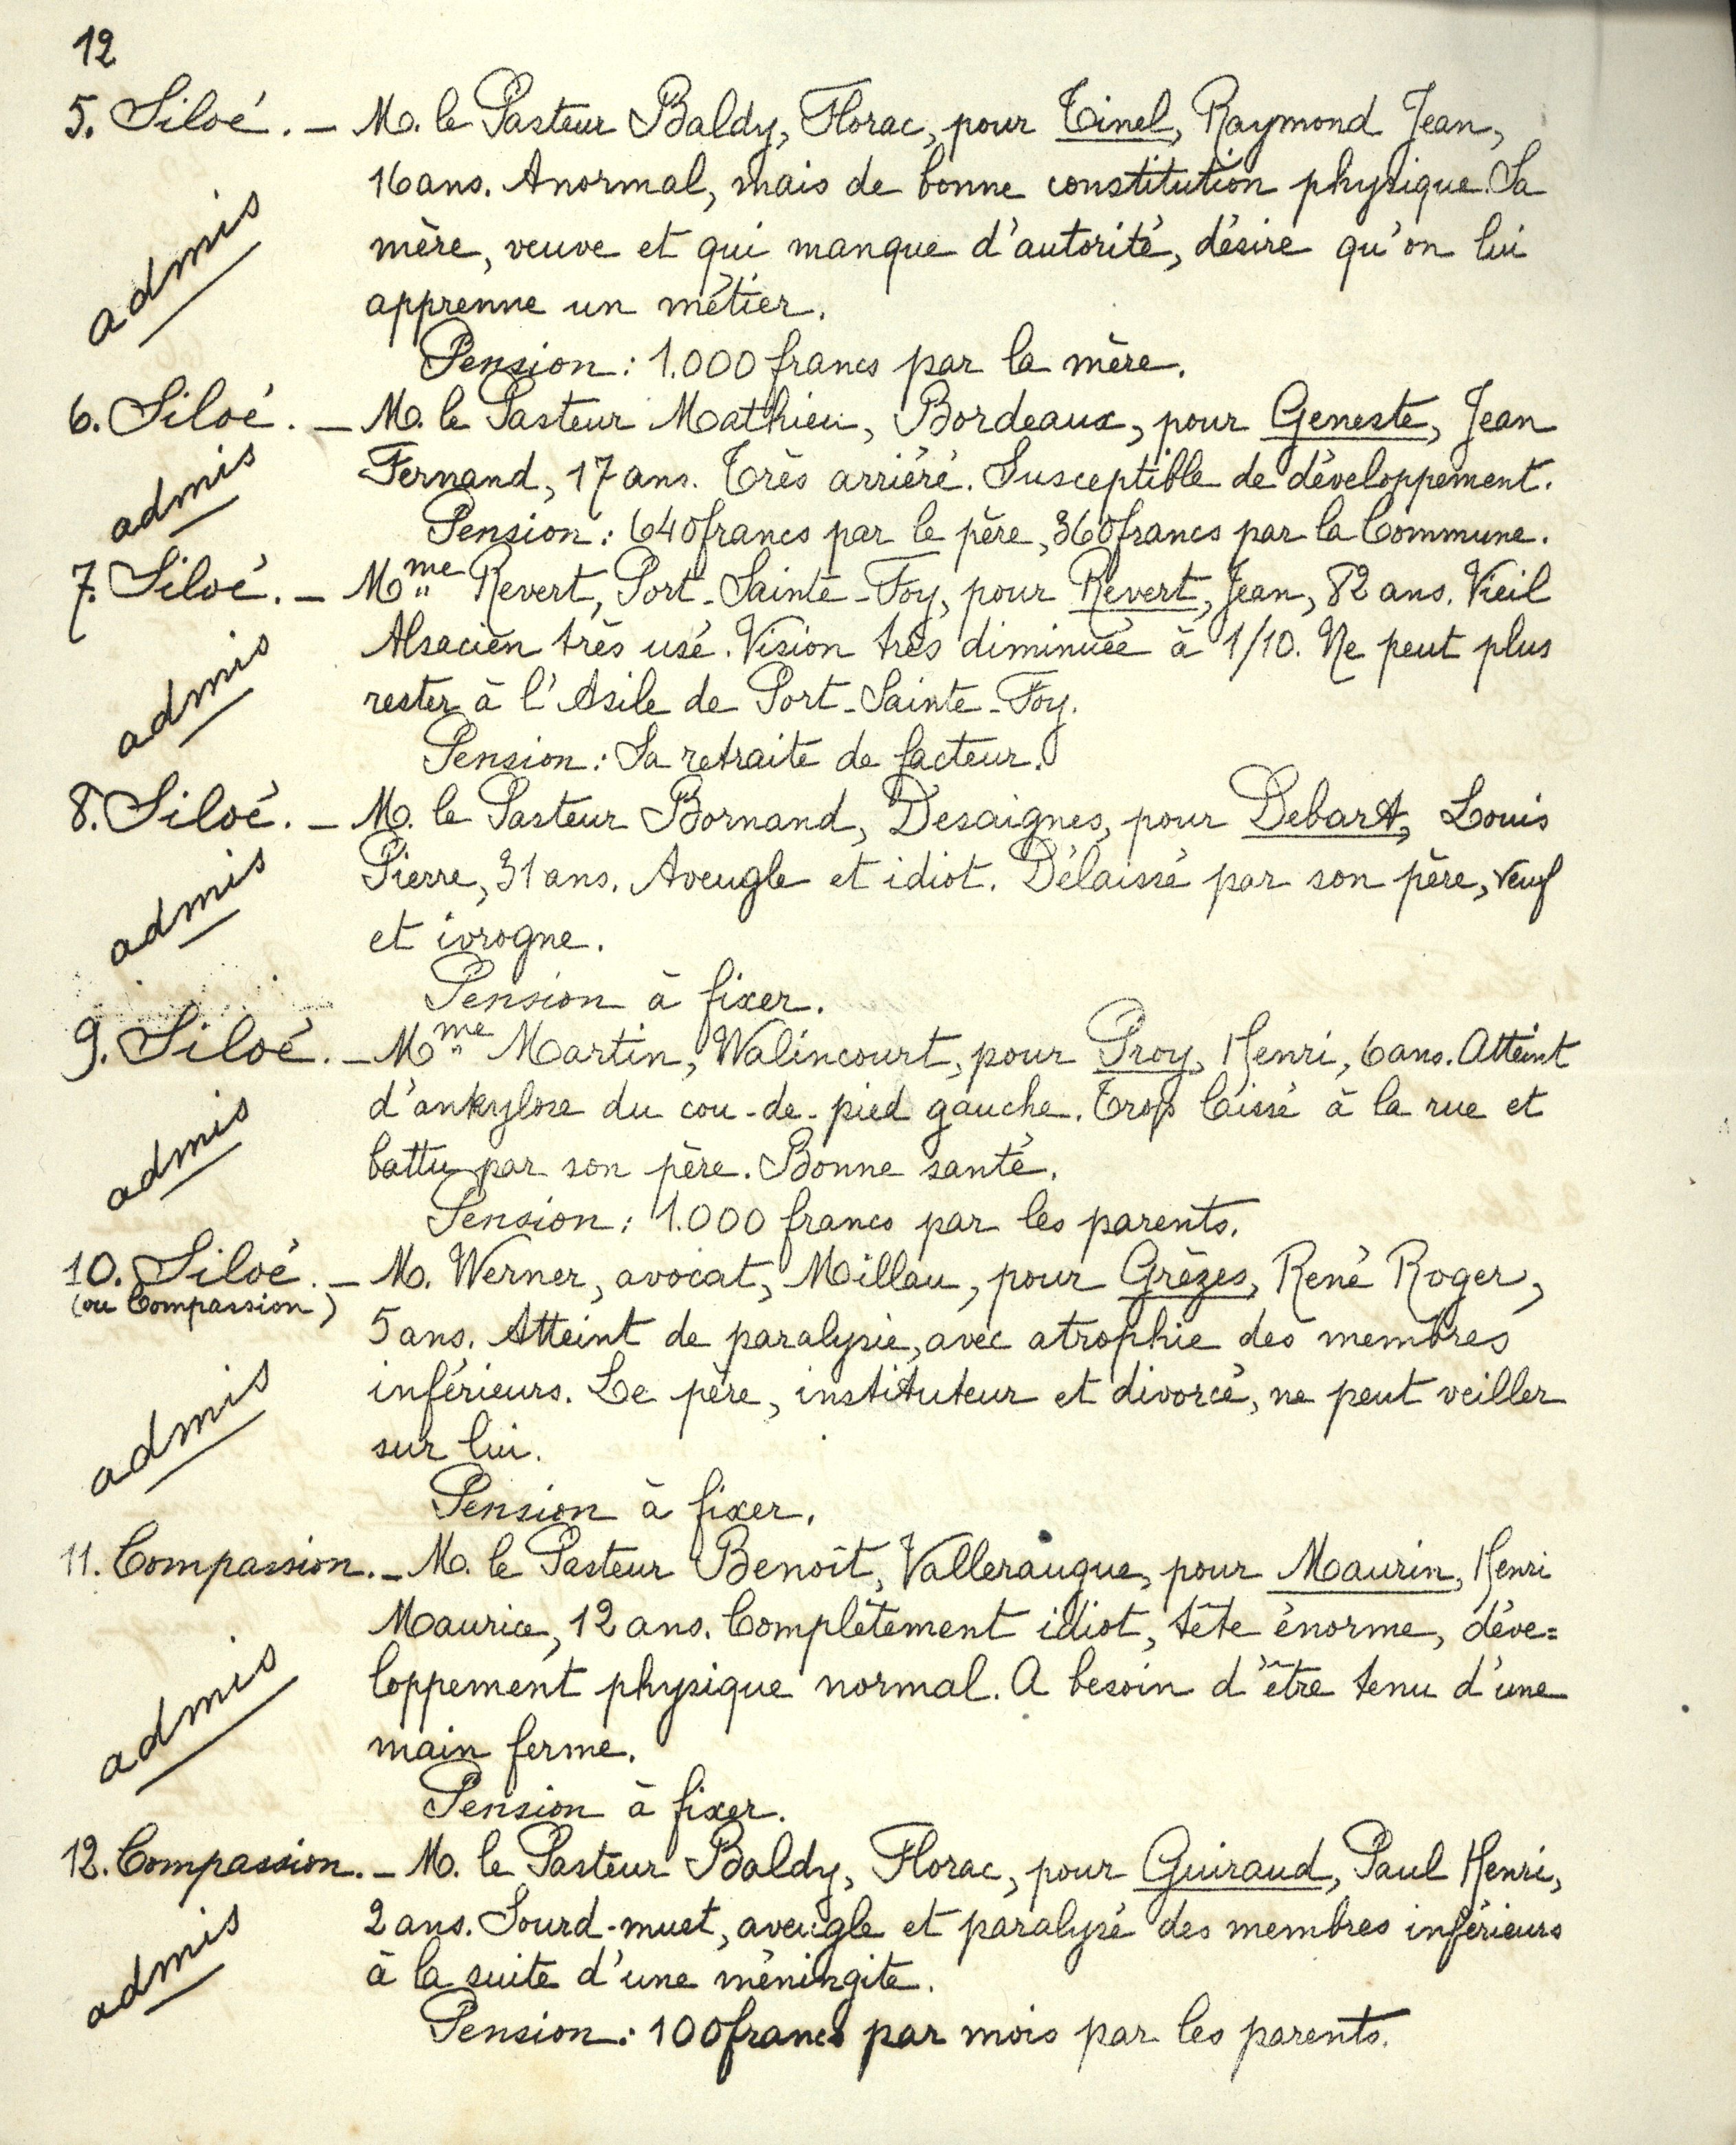 12
5. Siloé. – M. le Pasteur Baldy, Florac, pour Tinel, Raymond Jean,
16 ans. Anormal, mais de bonne constitution physique. Sa
admis
mère, veuve et qui manque d'autorité, désire qu'on lui
apprenne un métier.
Pension : 1.000 francs par la mère.
6. Siloé. – M. le Pasteur Mathieu, Bordeaux, pour Geneste, Jean
Fernand, 17 ans. Très arriéré. Susceptible de développement.
admis
Pension : 640 francs par le père, 360 francs par la Commune.
7. Siloé. – Mme Revert, Port-Sainte-Foy, pour Revert, Jean, 82 ans. Vieil
Alsacien très usé. Vision très diminuée à 1/10. Ne peut plus
admis
rester à l'Asile de Port-Sainte-Foy.
Pension : Sa retraite de facteur.
8. Siloé. – M. le Pasteur Bornand, Desaignes, pour Debart, Louis
Pierre, 31 ans. Aveugle et idiot. Délaissé par son père, veuf
admis
et ivrogne.
Pension à fixer.
9. Siloé. – Mme Martin, Walincourt, pour Proy, Henri, 6 ans. Atteint
d'ankylose du cou-de-pied gauche. Trop laissé à la rue et
admis
battu par son père. Bonne santé.
Pension : 1.000 francs par les parents.
10. Siloé. – M. Werner, avocat, Millau, pour Grèzes, René Roger,
(ou Compassion)
5 ans. Atteint de paralysie, avec atrophie des membres
inférieurs. Le père, instituteur et divorcé, ne peut veiller
admis
sur lui.
Pension à fixer.
11. Compassion. – M. le Pasteur Benoît, Valleraugue, pour Maurin, Henri
Maurice, 12 ans. Complètement idiot, tête énorme, déve=
loppement physique normal. A besoin d'être tenu d'une
admis
main ferme.
Pension à fixer.
12. Compassion. – M. le Pasteur Baldy, Florac, pour Guiraud, Paul Henri,
2 ans. Sourd-muet, aveugle et paralysé des membres inférieurs
admis
à la suite d'une méningite.
Pension : 100 francs par mois par les parents.